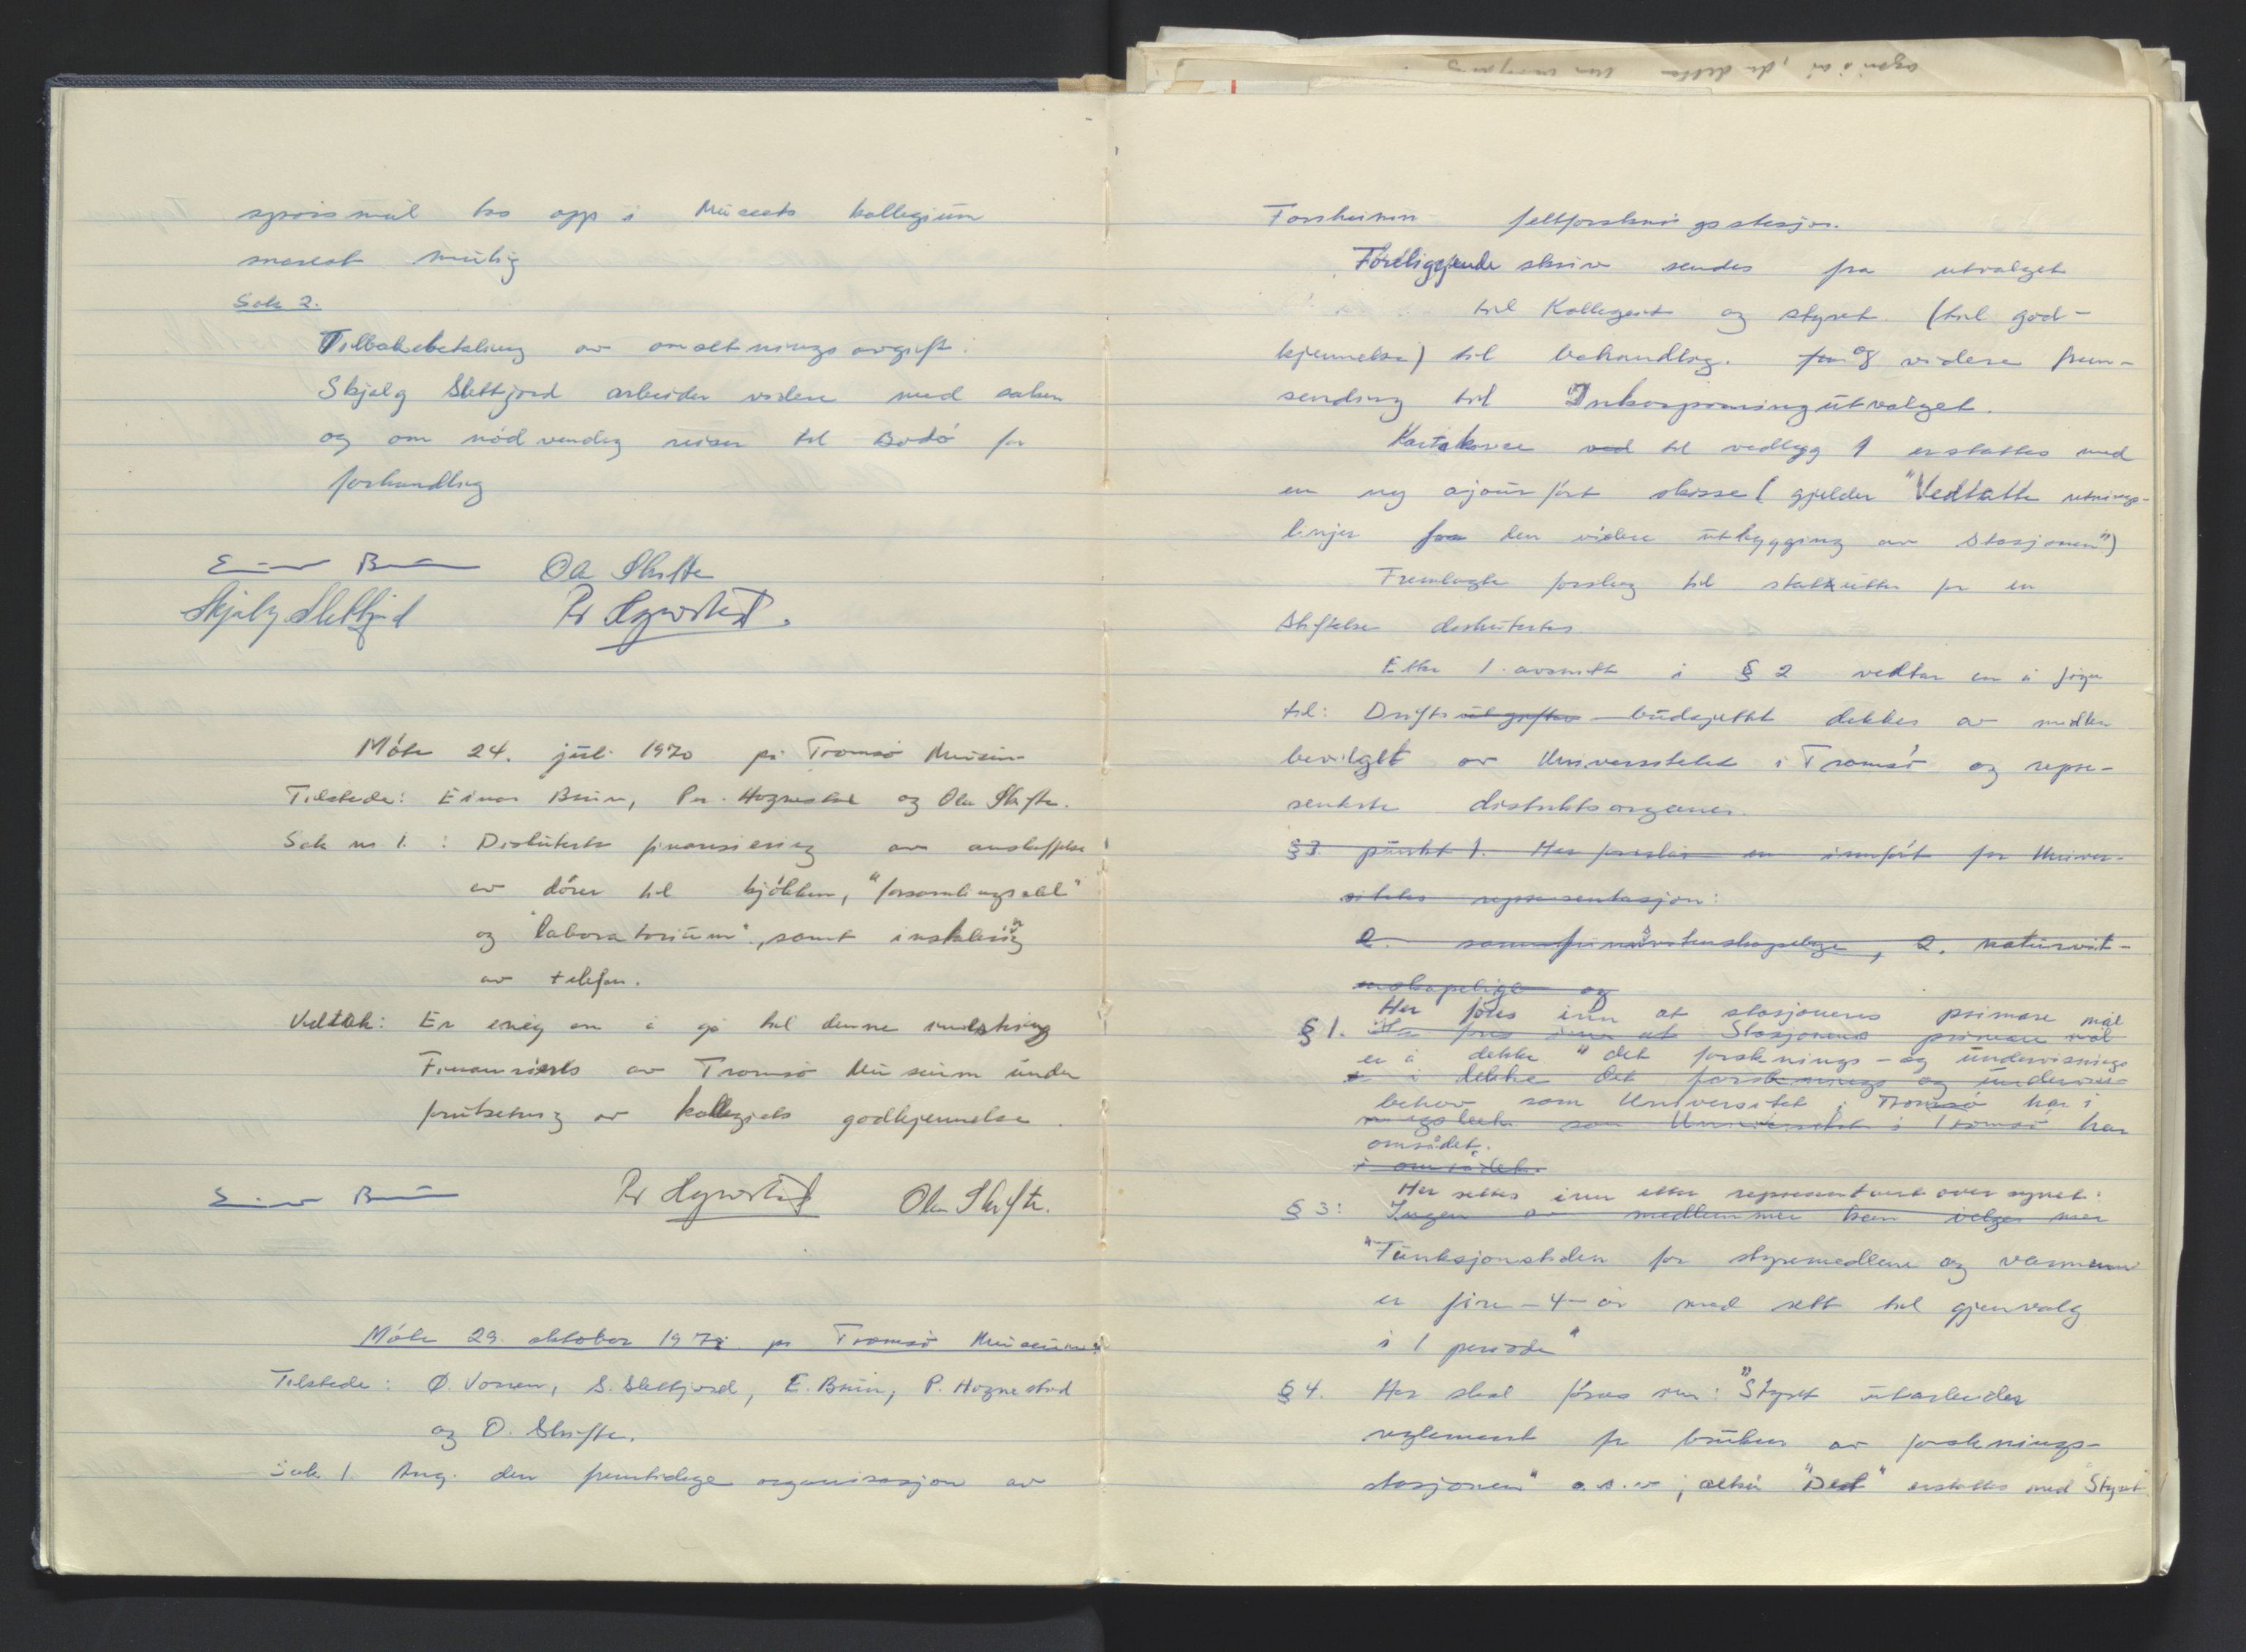 spørsmål tas opp i Museets kollegium
snarest mulig
Sak 2.
Tilbakebetaling av omsetningsavgift.
Skjalg Slettjord arbeider videre med saken
og om nødvendig reiser til Bodø for
forhandling
Einar Bruun Ola Skifte
Skjalg Slettjord Per Hognestad.
Møte 24. juli 1970 på Tromsø Museum
Tilstede: Einar Bruun, Per Hognestad og Ola Skifte.
Sak nr 1. : Diskuterte finansiering av anskaffelse
av dører til kjøkken, "forsamlingssal"
og "laboratorium", samt installering
av telefon.
Vedtak: En enig om å gå til denne innkjøring
Finansieres av Tromsø Museum under
forutsetning av kollegiets godkjennelse.
Einar Bruun Per Hognestad Ola Skifte.
Møte 29. oktober 197 på Tromsø Museum:
Tilstede: Ø. Vorren, S. Slettjord, E. Bruun, P. Hognestad
og O. Skifte.
Sak 1. Ang. den fremtidige organisasjon av
Forsheimen feltforskningsstasjon.
Foreliggende skriv sendes fra utvalget
til Kollegiet og styret (til god-
kjennelse) til behandling. for og videre frem-
sending til Inkorporeringsutvalget.
Kartskisse ved til vedlegg 1 erstattes med
en ny ajourført skisse (gjelder "Vedtatte retnings-
linjer for den videre utbygging av Stasjonen")
Fremlagte forslag til statutter for en
Stiftelse diskutertes.
Etter 1. avsnitt i § 2 vedtar en å føye
til: Driftsutgifter budsjettet dekkes av midler
bevilget av Universitetet i Tromsø og repre-
senterte distriktsorganer.
§3 punkt 1. Her foreslår en innført for Univer-
sitetets representasjon:
2. samfunnsvitenskapelige, 2. naturvit-
enskapelige og
Her føres inn at stasjonens primære mål
§ 1. Her føres inn at Stasjonens primære mål
er å dekke "det forsknings- og undervisnings
er å dekke det forsknings og undervis-
behov som Universitet i Tromsø har i
ningsbehov som Universitetet i Tromsø har
området.
i området.
Her settes inn etter representant over styret:
§ 3: Ingen av medlemmer kan velges mer
"Funksjonstiden for styremedlem og varamenn
er fire -4- år med rett til gjenvalg
i 1 periode"
§ 4. Her skal føres inn: "Styret utarbeider
reglement for bruken av forsknings-
stasjonen" o.s.v; altså "Det" erstattes med "Styret"